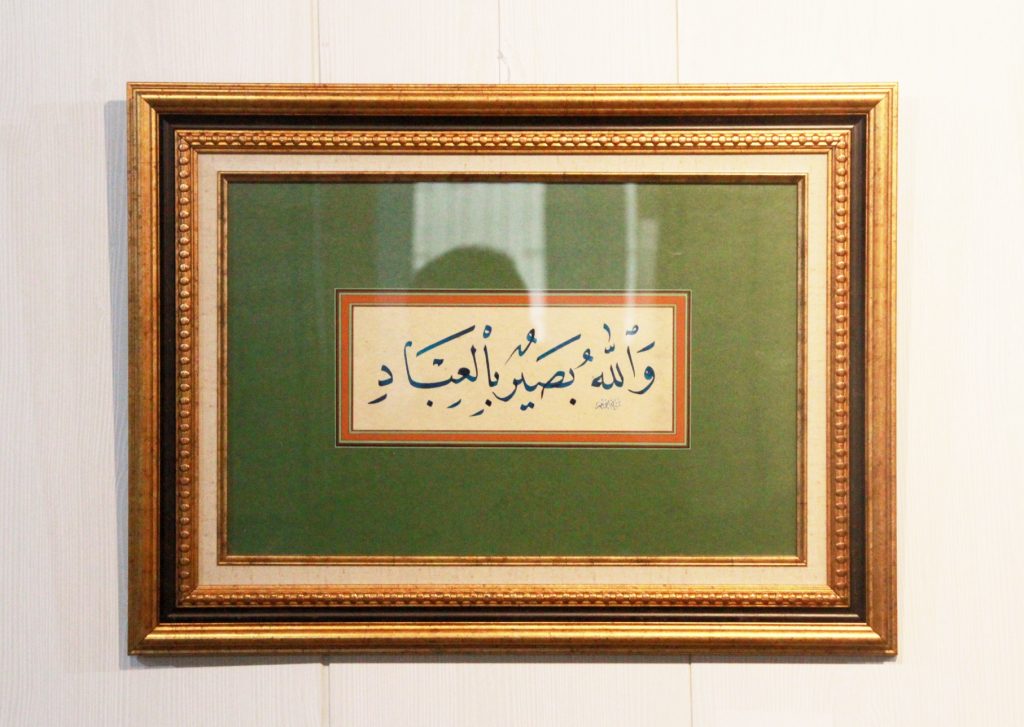 وَاللّٰهُ بَصَيْرٌ بِاْلعِبَادِ